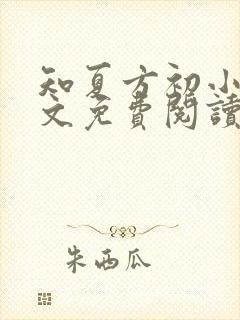 知夏方初小
文免費閱讀
朱西瓜